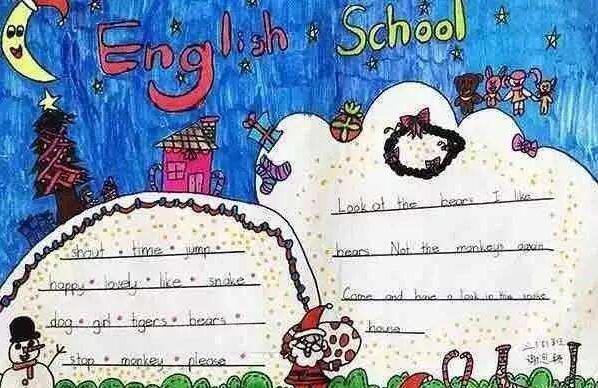 English School
shout • time • jump •
happy • lovely • like • snake
dog • girl • tigers • bears •
stop • monkey • please •
Look at the bears I like
bears Not the monkeys again
Come and have a look in the snake
house